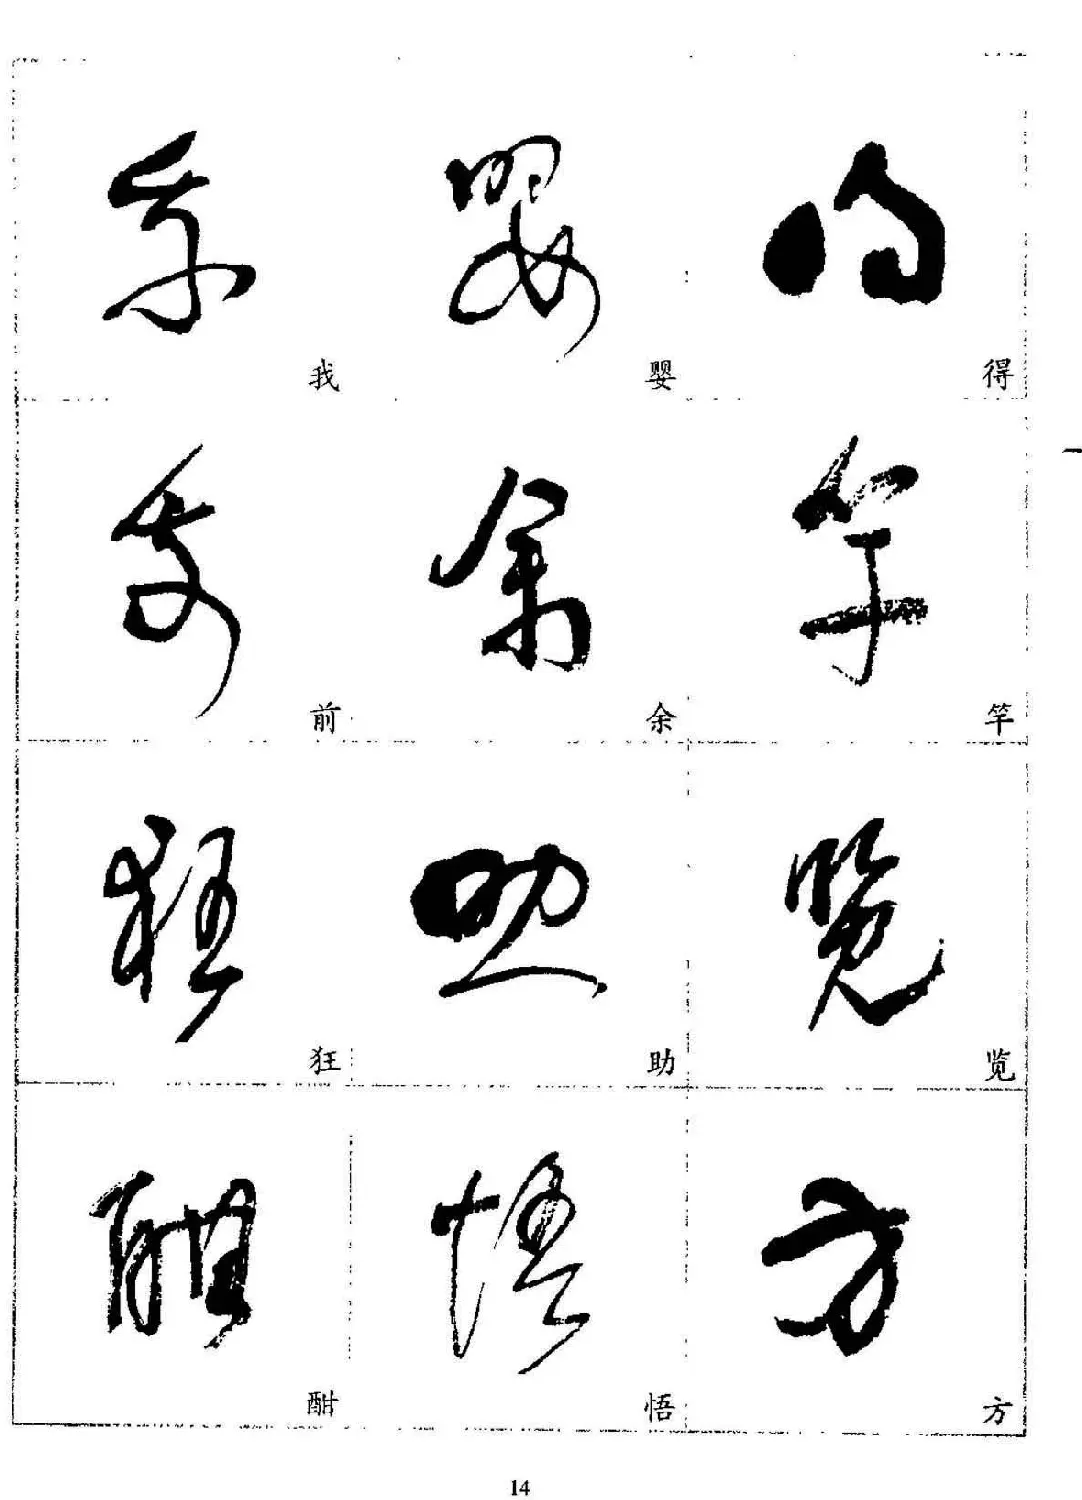 我 婴 得
前 余 竿
狂 助 览
酣 悟 方
14